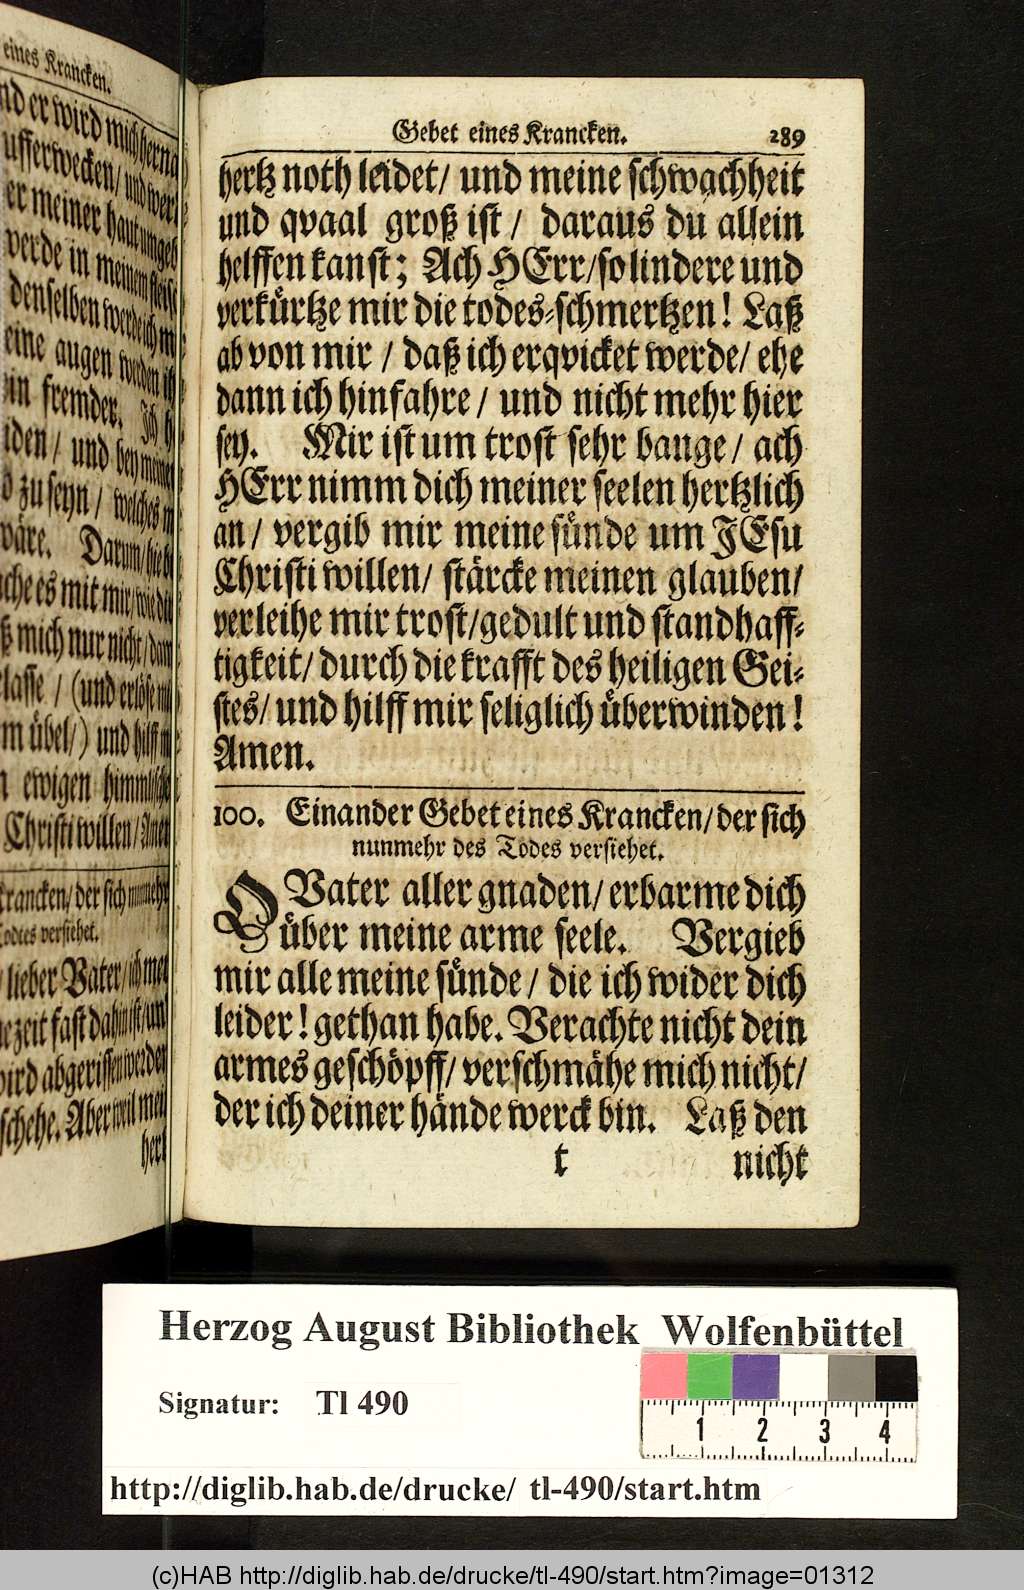 eines Krancken.
er wird mich
ufferwecken/ und
er meiner haut umgeb
werde in meinem fleisch
denselben werde ich
eine augen werden
fremder. Ich
iden/ und bey meinem
zu seyn/ welches
wäre. Darum/ hie
es mit mir/ wie
mich nur nicht/
/ (und erlöse
übel/) und hilff
ewigen
Christi willen/ Amen
Krancken/ der sich nunmehr
Todtes versiehet.
lieber Vater/ ich
zeit fast dahin ist/
wird abgerissen werden
Aber weil
hertz
Gebet eines Krancken. 289
hertz noth leidet/ und meine schwachheit
und qvaal groß ist / daraus du allein
helffen kanst; Ach HErr/ so lindere und
verkürtze mir die todes-schmertzen! Laß
ab von mir / daß ich erqvicket werde/ ehe
dann ich hinfahre / und nicht mehr hier
sey. Mir ist um trost sehr bange / ach
HErr nimm dich meiner seelen hertzlich
an / vergib mir meine sünde um JEsu
Christi willen/ stärcke meinen glauben/
verleihe mir trost/ gedult und standhaff-
tigkeit/ durch die krafft des heiligen Gei-
stes/ und hilff mir seliglich überwinden!
Amen.
100. Ein ander Gebet eines Krancken/ der sich
nunmehr des Todes versiehet.
O Vater aller gnaden/ erbarme dich
über meine arme seele. Vergieb
mir alle meine sünde / die ich wider dich
leider! gethan habe. Verachte nicht dein
armes geschöpff/ verschmähe mich nicht/
der ich deiner hände werck bin. Laß den
t nicht
Herzog August Bibliothek Wolfenbüttel
Signatur: Tl 490
1 2 3 4
http://diglib.hab.de/drucke/ tl-490/start.htm
(c)HAB http://diglib.hab.de/drucke/tl-490/start.htm?image=01312